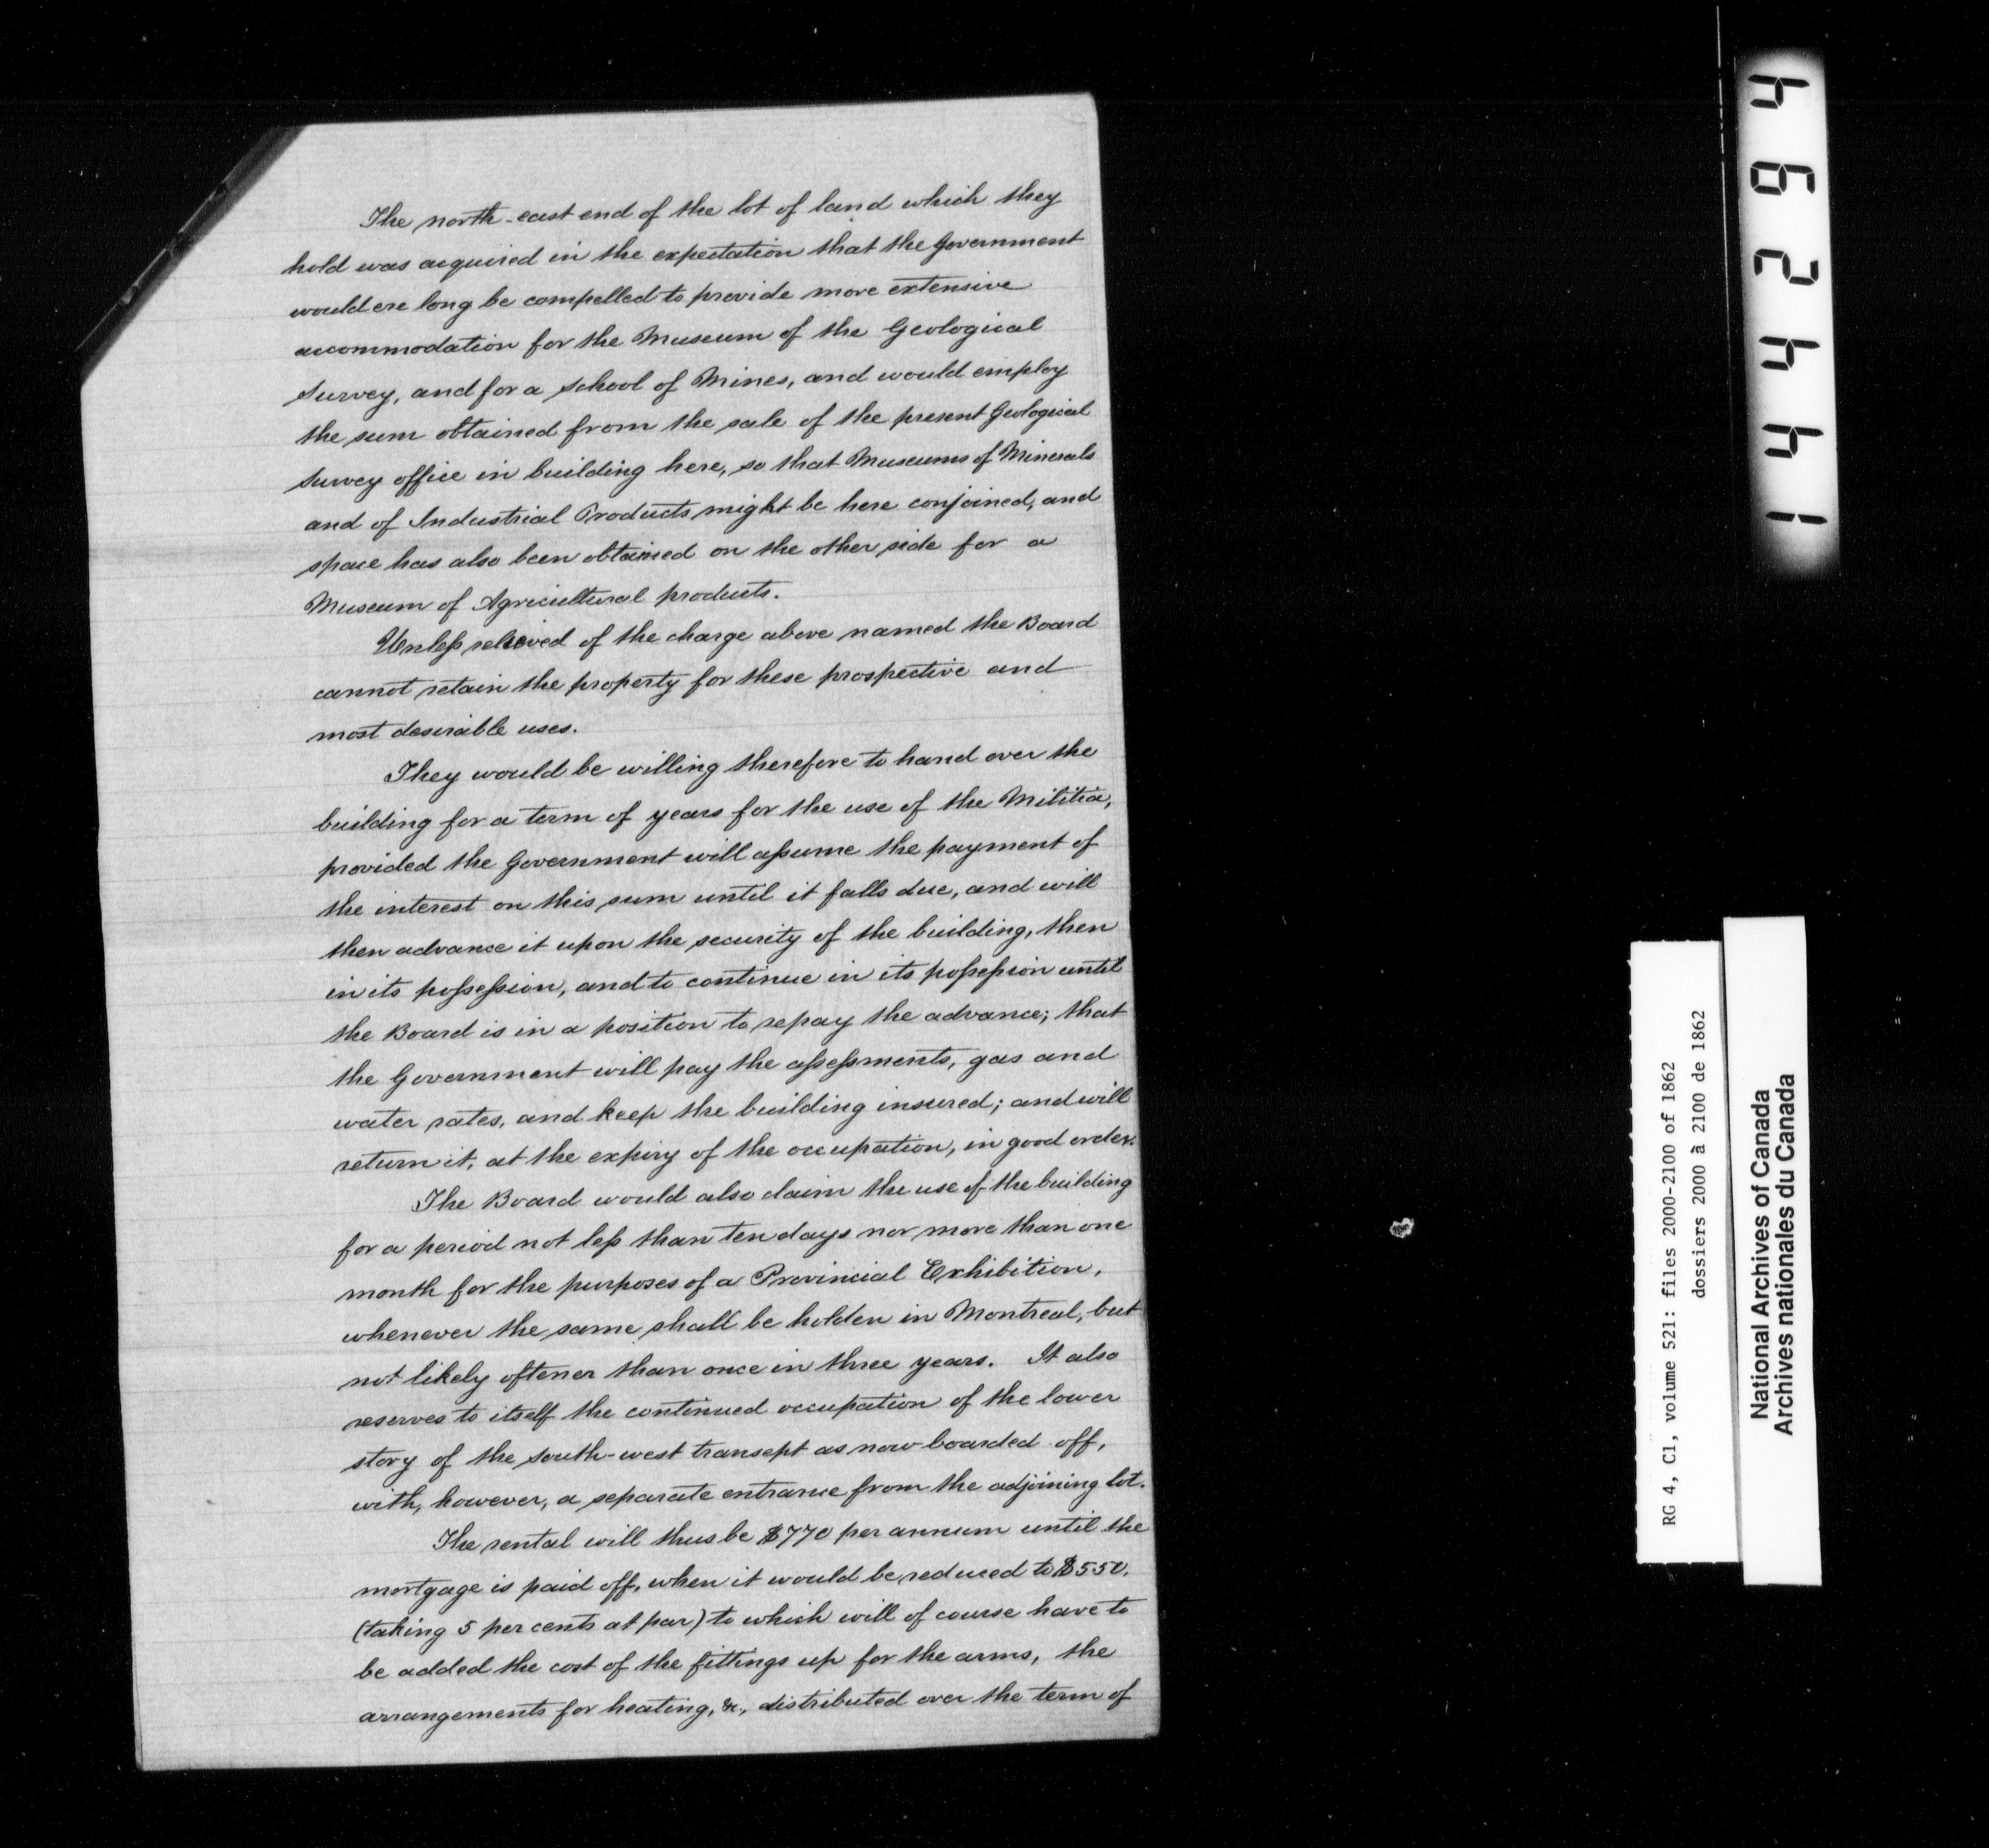 The north-east end of the lot of land which they
hold was acquired in the expectation that the Government
would ere long be compelled to provide more extensive
accommodation for the Museum of the Geological
Survey, and for a School of Mines, and would employ
the sum obtained from the sale of the present Geological
Survey office in building here, so that Museums of Minerals
and of Industrial Products might be here conjoined, and
space has also been obtained on the other side for a
Museum of Agricultural products.
Unless relieved of the charge above named the Board
cannot retain the property for these prospective and
most desirable uses.
They would be willing therefore to hand over the
building for a term of years for the use of the Militia,
provided the Government will assume the payment of
the interest on this sum until it falls due, and will
then advance it upon the security of the building, then
in its possession, and to continue in its possession until
the Board is in a position to repay the advance; that
the Government will pay the assessments, gas and
water rates, and keep the building insured; and will
return it, at the expiry of the occupation, in good order.
The Board would also claim the use of the building
for a period not less than ten days nor more than one
month for the purposes of a Provincial Exhibition,
whenever the same shall be holden in Montreal, but
not likely oftener than once in three years. It also
reserves to itself the continued occupation of the lower
story of the south-west transept as now boarded off,
with, however, a separate entrance from the adjoining lot.
The rental will thus be $770 per annum until the
mortgage is paid off, when it would be reduced to $550,
(taking 5 per cents at par) to which will of course have to
be added the cost of the fittings up for the arms, the
arrangements for heating, &c., distributed over the term of
144294
RG 4, C1, volume 521: files 2000-2100 of 1862
dossiers 2000 à 2100 de 1862
National Archives of Canada
Archives nationales du Canada